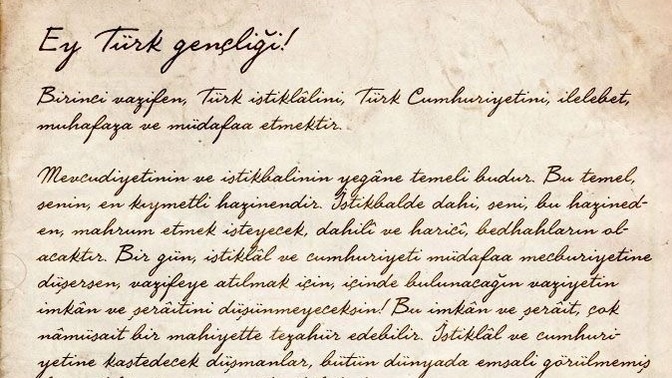 Ey Türk gençliği!
Birinci vazifen, Türk istiklâlini, Türk Cumhuriyetini, ilelebet,
muhafaza ve müdafaa etmektir.
Mevcudiyetinin ve istikbalinin yegâne temeli budur. Bu temel,
senin, en kıymetli hazinendir. İstikbalde dahi, seni, bu hazined-
en, mahrum etmek isteyecek, dahilî ve haricî, bedhahların ol-
acaktır. Bir gün, istiklâl ve cumhuriyeti müdafaa mecburiyetine
düşersen, vazifeye atılmak için, içinde bulunacağın vaziyetin
imkân ve şerâitini düşünmeyeceksin! Bu imkân ve şerâit, çok
nâmüsait bir mahiyette tezahür edebilir. İstiklâl ve cumhuri-
yetine kastedecek düşmanlar, bütün dünyada emsali görülmemiş